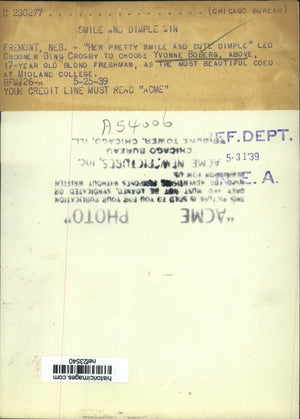 C 230277 (CHICAGO BUREAU)
SMILE AND DIMPLE WIN
FREMONT, NEB. - "HER PRETTY SMILE AND CUTE DIMPLE" LED
CROONER BING CROSBY TO CHOOSE YVONNE BOBERG, ABOVE,
17-YEAR OLD BLOND FRESHMAN, AS THE MOST BEAUTIFUL COED
AT MIDLAND COLLEGE.
BFM 5-25-39
YOUR CREDIT LINE MUST READ "ACME"
A54006
EF. DEPT.
5-31'39
E. A.
"ACME
PHOTO"
THIS PICTURE IS SOLD TO YOU FOR YOUR PUBLICATION
ONLY AND MUST NOT BE LOANED, SYNDICATED OR
USED FOR ADVERTISING PURPOSES WITHOUT WRITTEN
PERMISSION FROM US.
ACME NEWSPICTURES, INC.
CHICAGO BUREAU
TRIBUNE TOWER, CHICAGO, ILL.
historicimages.com
nef23540